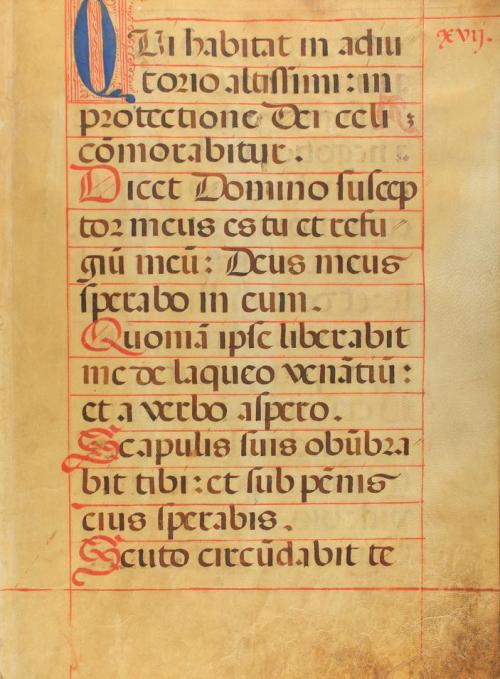 QUi habitat in adiu
xvij.
torio altissimi: in
protectione Dei celi
cōmorabitur.
Dicet Domino suscep
tor meus es tu et refu
giū meū: Deus meus
sperabo in eum.
Quoniā ipse liberabit
me de laqueo venātiū:
et a verbo aspero.
Scapulis suis obūbra
bit tibi: et sub pēnis
eius sperabis.
Scuto circūdabit te